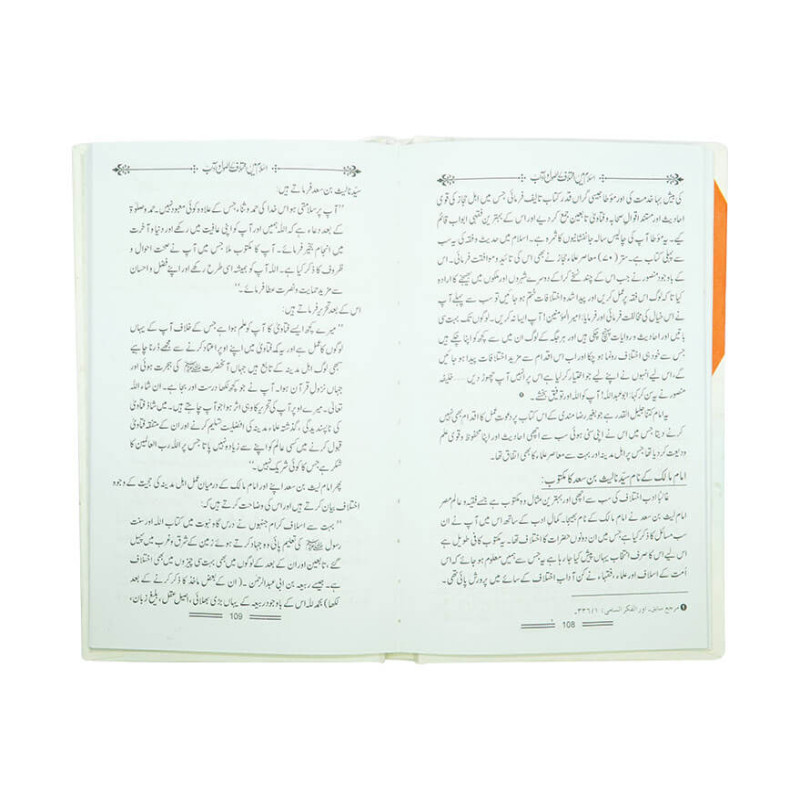 اسلام میں اختلاف کے اصول و آداب
کی بیش بہا خدمت کی اور مؤطا جیسی گراں قدر کتاب تالیف فرمائی جس میں اہل حجاز کی قوی
احادیث اور مستند اقوال صحابہ و فتاویٰ تابعین جمع کر دیے اور اس کے بہترین فقہی ابواب قائم
کیے۔ یہ مؤطا آپ کی چالیس سالہ جانفشانیوں کا ثمرہ ہے۔ اسلام میں حدیث و فقہ کی یہ سب
سے پہلی کتاب ہے۔ ستر (۷۰) معاصر علماء حجاز نے بھی اس کی تائید و موافقت فرمائی۔ اس
کے باوجود منصور نے جب اس کے چند نسخے کرا کے دوسرے شہروں اور ملکوں میں بھیجنے کا ارادہ
کیا تاکہ لوگ اس فقہ پر عمل کریں اور پیدا شدہ اختلافات ختم ہو جائیں تو سب سے پہلے آپ
نے اس خیال کی مخالفت فرمائی اور فرمایا: امیر المؤمنین! آپ ایسا نہ کریں۔ لوگوں تک بہت سی
باتیں اور احادیث و روایات پہنچ چکی ہیں اور ہر جگہ کے لوگ ان میں سے کچھ کو اپنا چکے ہیں
جس سے خود ہی اختلاف رونما ہو چکا اور اب اس اقدام سے مزید اختلافات پیدا ہو جائیں
گے، اس لیے انہوں نے اپنے لیے جو اختیار کر لیا ہے اس پر انہیں آپ چھوڑ دیں ...... خلیفہ
منصور نے یہ سن کر کہا: ابو عبداللہ! آپ کو اللہ اور توفیق بخشے۔ ❶
یہ امام کتنا جلیل القدر ہے جو بغیر رضا مندی کے اس کتاب پر دعوت عمل کا اقدام بھی نہیں
کرنے دیتا جس میں اس نے اپنی سنی ہوئی سب سے اچھی احادیث اور اپنا محفوظ و قوی علم
ودیعت کر دیا تھا جس پر اہل مدینہ اور بہت سے معاصر علماء کا بھی اتفاق تھا۔
امام مالک کے نام سیّدنا لیث بن سعد کا مکتوب:
غالباً ادب اختلاف کی سب سے اچھی اور بہترین مثال وہ مکتوب ہے جسے فقیہ و عالم مصر
امام لیث بن سعد نے امام مالک کے نام بھیجا۔ کمال ادب کے ساتھ اس میں آپ نے ان
سب مسائل کا ذکر کیا ہے جس میں ان دونوں حضرات کا اختلاف تھا۔ یہ مکتوب کافی طویل ہے
اس لیے اس کا صرف انتخاب یہاں پیش کیا جا رہا ہے جس سے ہمیں معلوم ہو جائے کہ اس
اُمت کے اسلاف اور علماء و فقہاء نے کن آداب اختلاف کے سائے میں پرورش پائی تھی۔
❶ مرجع سابق، اور الفکر السامی: ۱/۳۳۶۔
108
اسلام میں اختلاف کے اصول و آداب
سیّدنا لیث بن سعد فرماتے ہیں:
’’آپ پر سلامتی ہو اس خدا کی حمد و ثناء جس کے علاوہ کوئی معبود نہیں۔ حمد و صلوٰۃ
کے بعد دعا ہے کہ اللہ ہمیں اور آپ کو اپنی عافیت میں رکھے اور دنیا و آخرت
میں انجام بخیر فرمائے۔ آپ کا مکتوب ملا جس میں آپ نے صحت احوال و
ظروف کا ذکر کیا ہے۔ اللہ آپ کو ہمیشہ اسی طرح رکھے اور اپنے فضل و احسان
سے مزید حمایت و نصرت عطا فرمائے۔‘‘
اس کے بعد تحریر فرماتے ہیں:
’’میرے کچھ ایسے فتاویٰ کا آپ کو علم ہوا ہے جس کے خلاف آپ کے یہاں
لوگوں کا عمل ہے اور یہ کہ فتاویٰ میں اپنے اوپر اعتماد کرنے سے مجھے ڈرنا چاہیے
سبھی لوگ اہل مدینہ کے تابع ہیں جہاں آنحضرت ﷺ کی ہجرت ہوئی اور
جہاں نزول قرآن ہوا۔ آپ نے جو کچھ لکھا درست اور بجا ہے۔ ان شاء اللہ
تعالیٰ۔ میرے اوپر آپ کی تحریر کا وہی اثر ہوا جو آپ چاہتے ہیں۔ میں شاذ فتاویٰ
کی ناپسندیدگی، گذشتہ علماء مدینہ کی افضلیت تسلیم کرنے اور ان کے متفقہ فتاویٰ
قبول کرنے میں کسی عالم کو اپنے سے زیادہ نہیں پاتا جس پر اللہ رب العالمین کا
شکر ہے جس کا کوئی شریک نہیں۔‘‘
پھر امام لیث بن سعد اپنے اور امام مالک کے درمیان عمل اہل مدینہ کی حجیت کے وجوہ
اختلاف بیان کرتے ہیں اور اس کی وضاحت کرتے ہیں کہ:
’’بہت سے اسلاف کرام جنہوں نے درس گاہ نبوت میں کتاب اللہ اور سنت
رسول ﷺ کی تعلیم پائی وہ جہاد کرتے ہوئے زمین کے شرق و غرب میں پھیل
گئے، تابعین اور ان کے بعد کے لوگوں میں بھی بہت سی چیزوں میں بھی اختلاف
ہے۔ جیسے ربیعہ بن ابی عبدالرحمٰن۔ (ان کے بعض ماخذ کا ذکر کرنے کے بعد
لکھا) بحمد للہ اس کے باوجود ربیعہ کے یہاں بڑی بھلائی، اصیل عقل، بلیغ زبان،
109